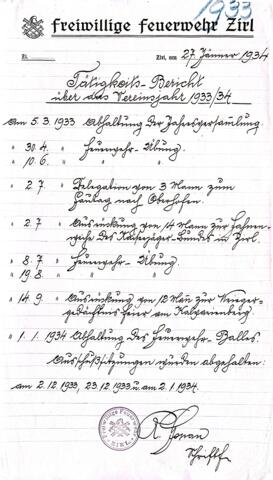 1933
Freiwillige Feuerwehr Zirl
Zirl, am 27. Jänner 1934
Tätigkeits-Bericht
über das Vereinsjahr 1933/34
Am 5.3.1933 Abhaltung der Jahresversammlung
" 30.4. Feuerwehr-Übung
" 10.6. " "
" 2.7. Delegation von 3 Mann zum
nach Oberhofen.
" 2.7 Ausrückung von 14 Mann zur Fahnen-
weihe des Kaiserjäger-Bundes in Zirl.
" 8.7 Feuerwehr-Übung
" 19.8. " "
" 14.9. Ausrückung von 12 Mann zur Krieger-
gedächtnisfeier am Kalvarienberg.
" 1.1.1934 Abhaltung des Feuerwehr-Balles.
Ausschußsitzungen wurden abgehalten:
am 2.12.1933, 23.12.1933 u. am 2.1.1934.
Freiwillige Feuerwehr
ZIRL
Schriftf.